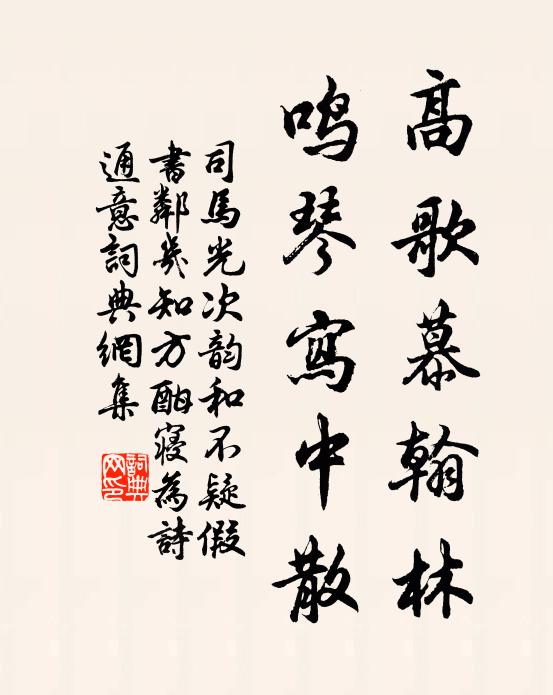 高歌慕翰林
鸣琴寫中散
司馬光次韵和不疑假
書鄰幾知方酣寝為詩
通意詞典網集
詞典网印